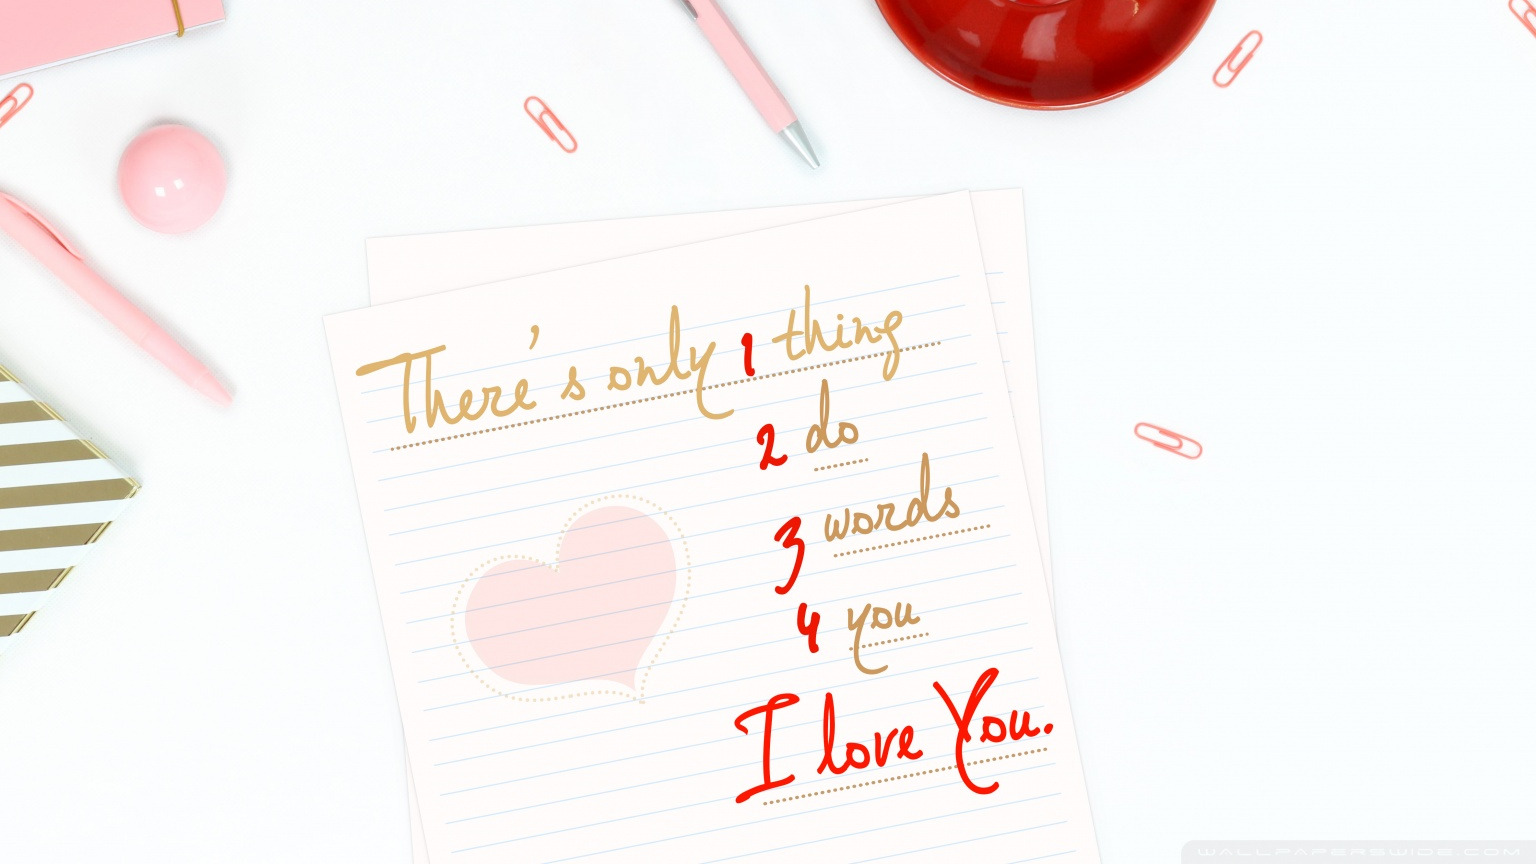 There's only 1 thing
2 do
3 words
4 you
I love You.
WALLPAPERSWIDE.COM